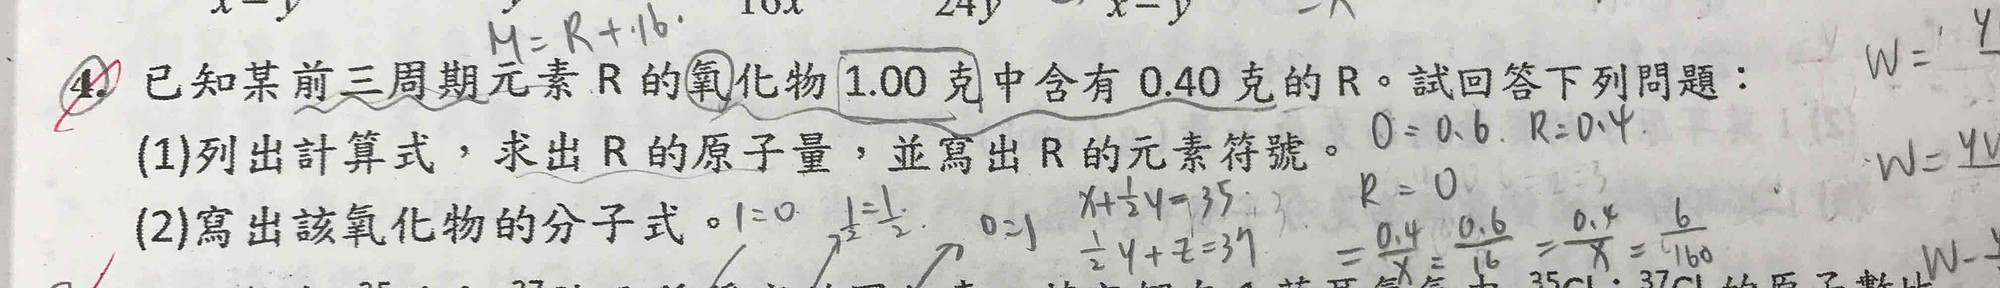 M = R + 16.
4. 已知某前三周期元素 R 的氧化物 1.00 克中含有 0.40 克的 R。試回答下列問題：
W =
(1)列出計算式，求出 R 的原子量，並寫出 R 的元素符號。 O = 0.6. R = 0.4.
(2)寫出該氧化物的分子式。 1=0 1/2=1/2. 0=1
x + 1/2 y = 35
1/2 y + z = 37
R = O
= 0.4/x = 0.6/16 = 0.4/x = 6/160
W =